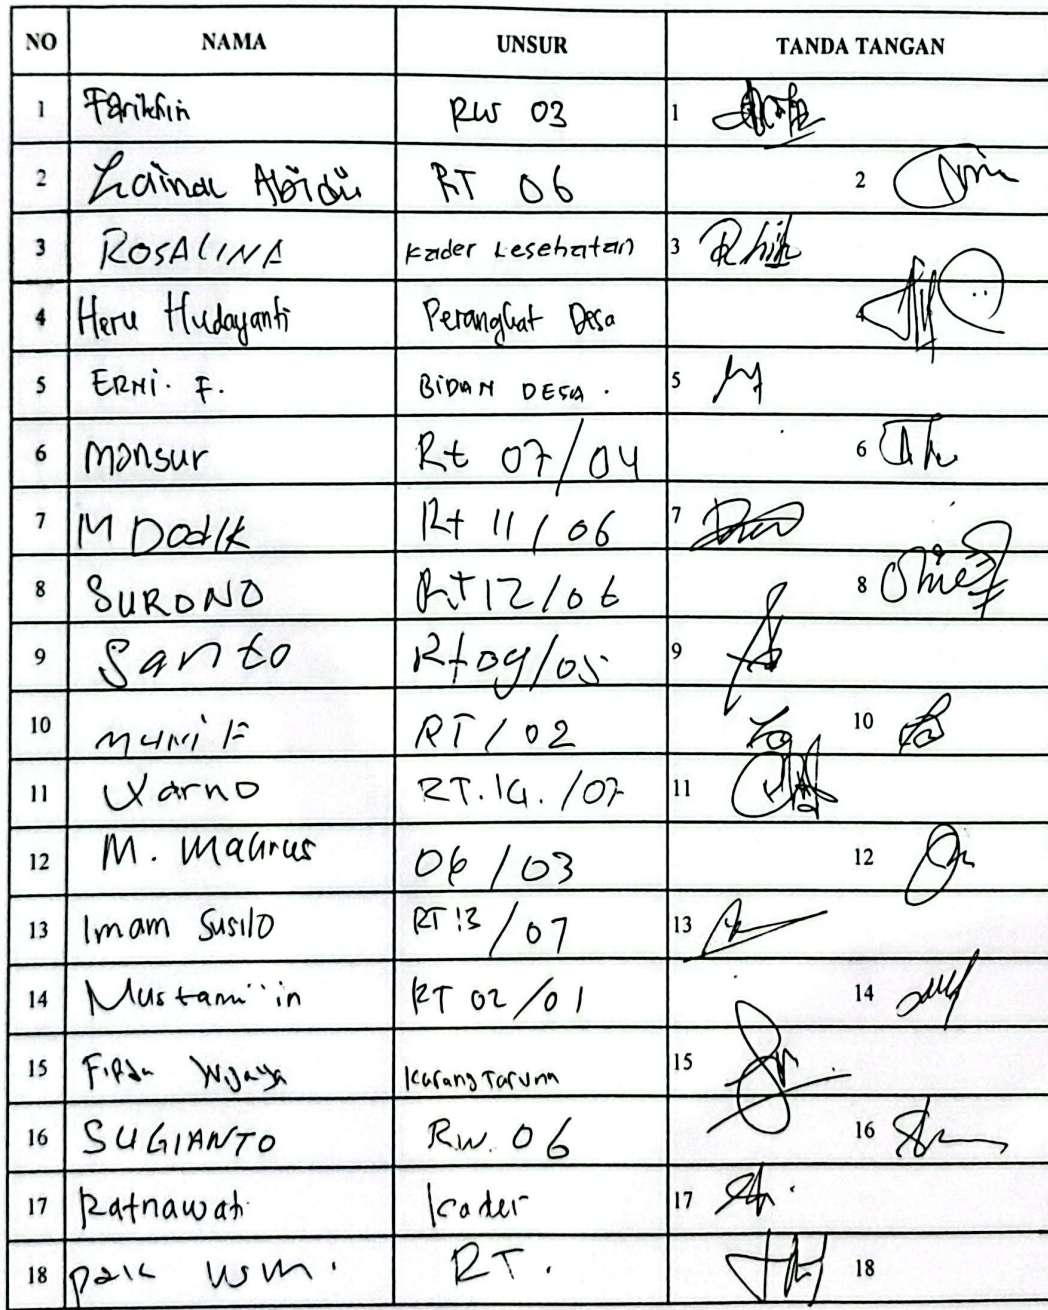 NO NAMA UNSUR TANDA TANGAN
1 Farikhin RW 03 1
2 Zainal Abidin RT 06 2
3 ROSALINA Kader Kesehatan 3
4 Heru Hudayanti Perangkat Desa 4
5 ERNI. F. BIDAN DESA. 5
6 Mansur Rt 07/04 6
7 M Dodik Rt 11/06 7
8 SURONO Rt 12/06 8
9 Santo Rt 09/05 9
10 RT/02 10
11 RT.14./07 11
12 M. Mahrus 06/03 12
13 Imam Susilo RT 13/07 13
14 Mustami'in RT 02/01 14
15 Wijaya Karang Taruna 15
16 SUGIANTO RW. 06 16
17 Ratnawati Kader 17
18 pak RT. 18